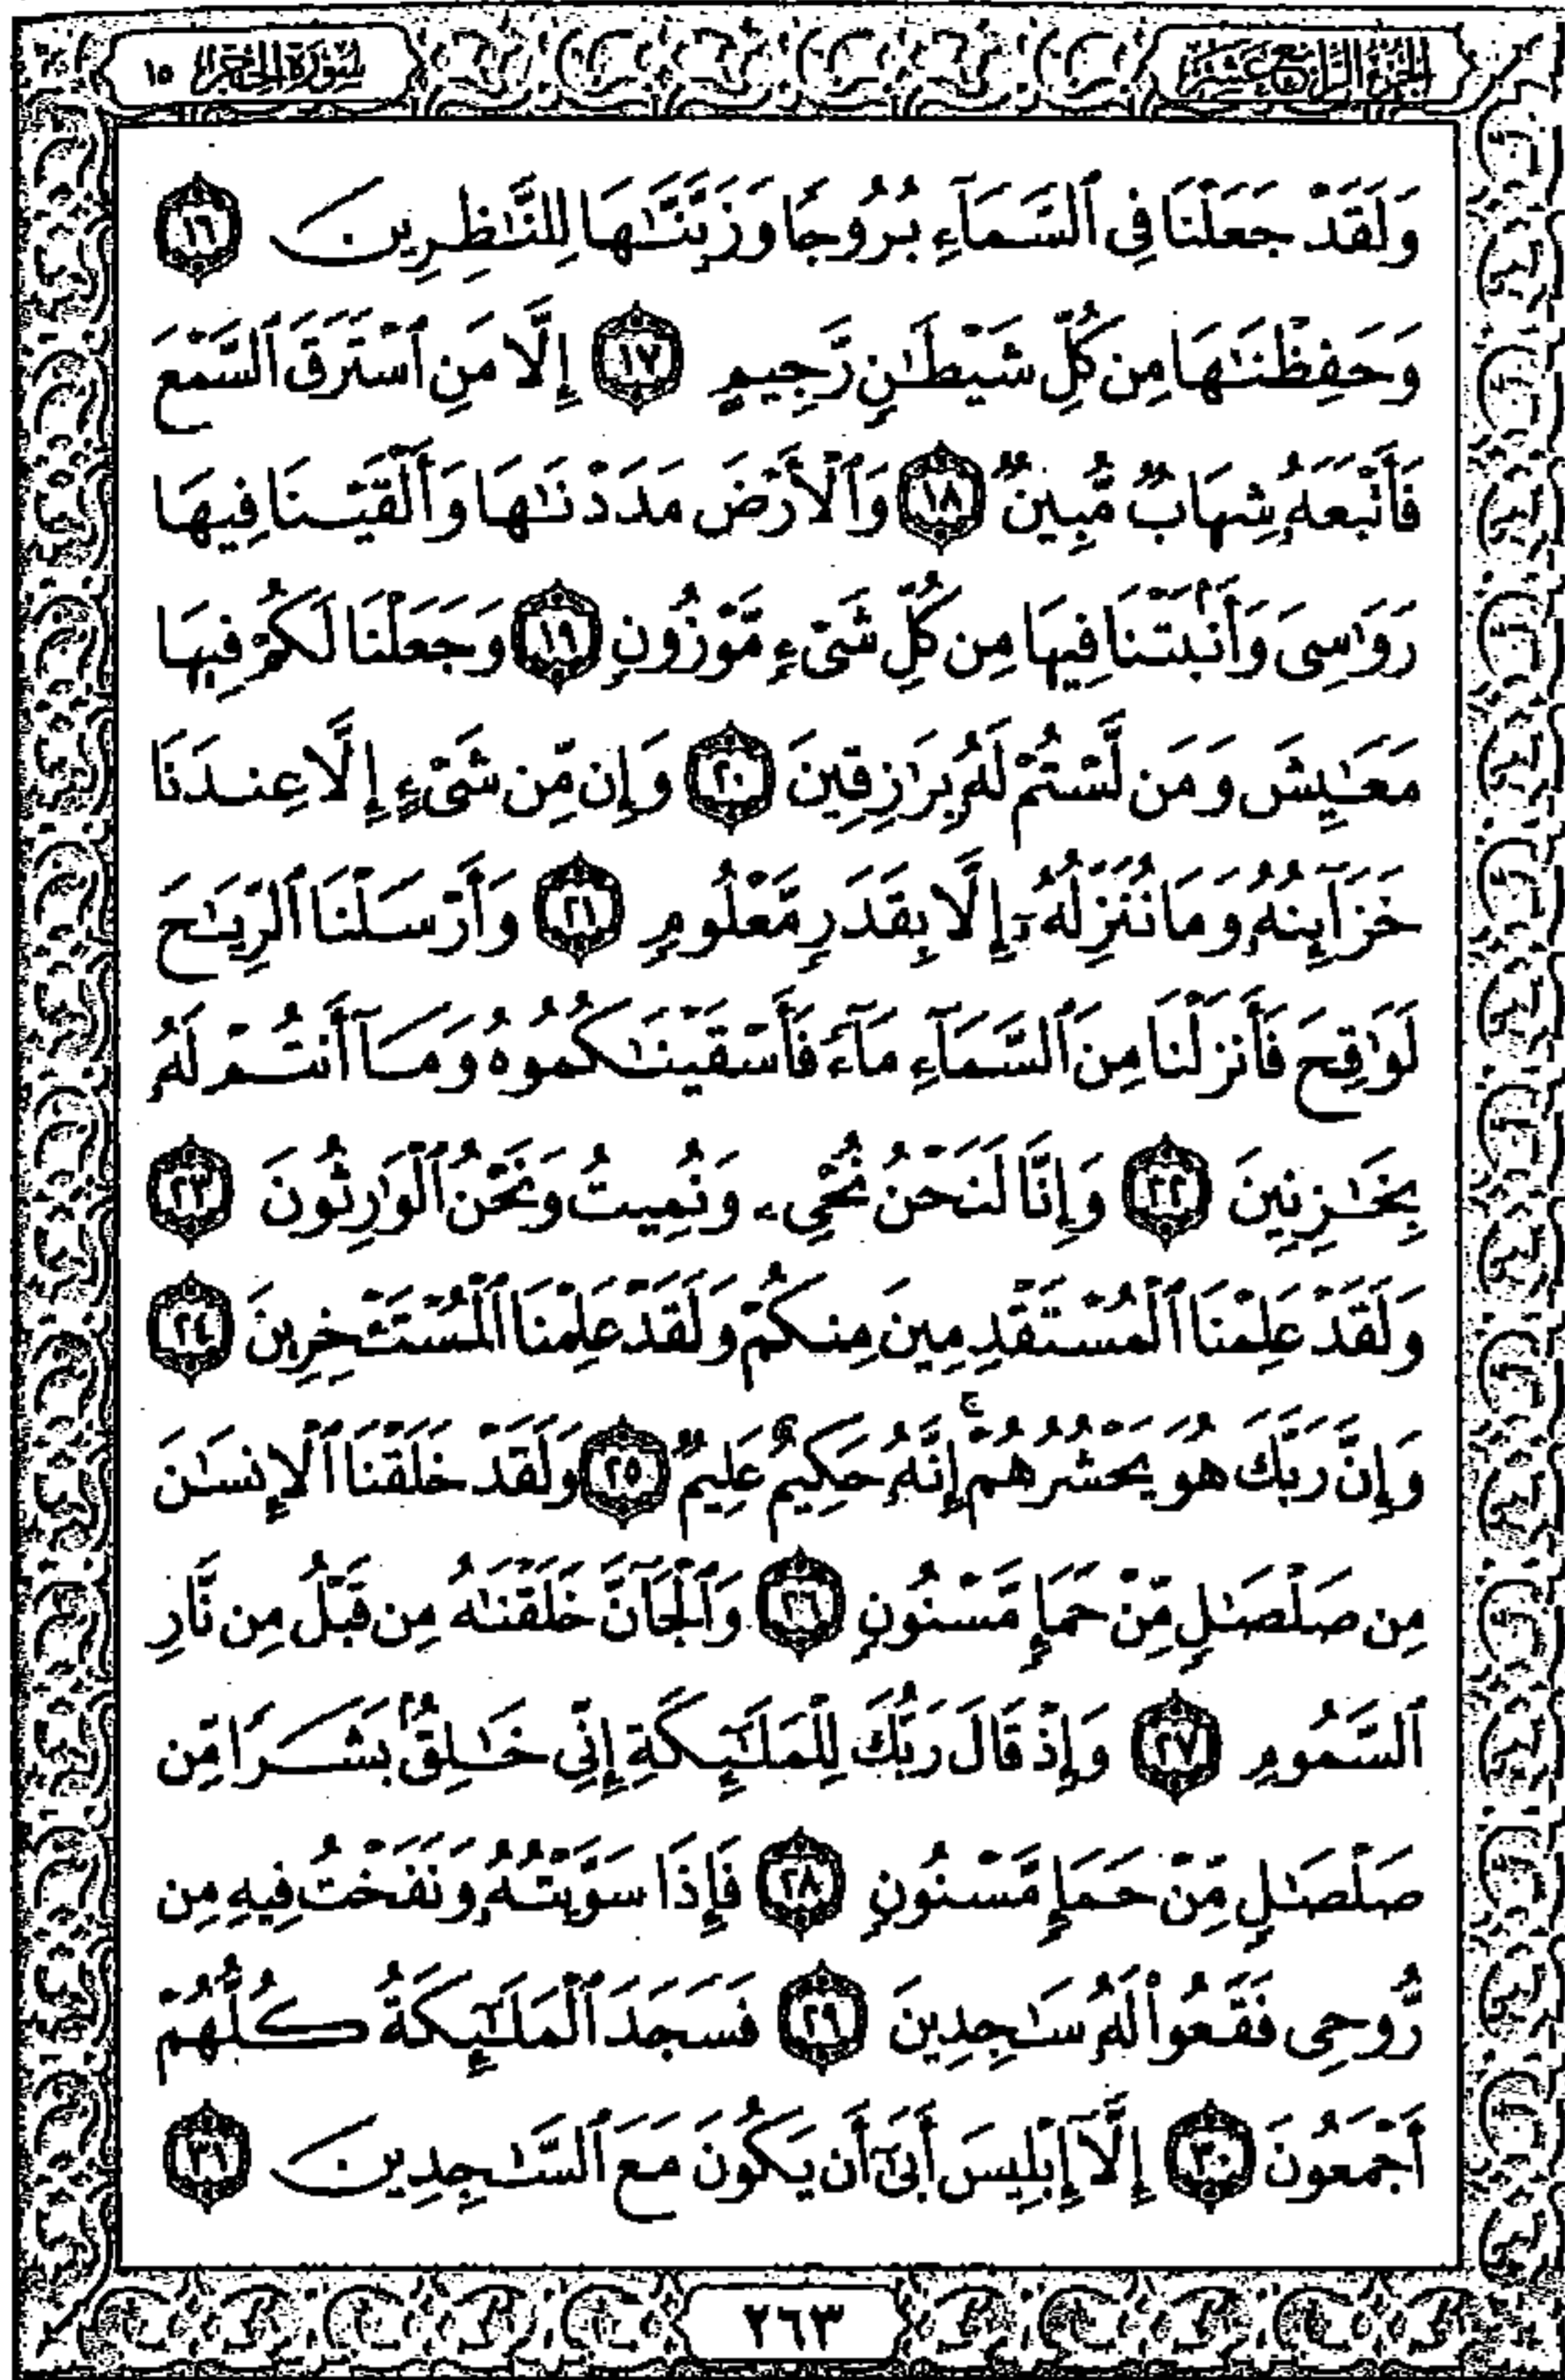 الجزء الرابع عشر
سورة الحجر ١٥
وَلَقَدْ جَعَلْنَا فِى ٱلسَّمَآءِ بُرُوجًا وَزَيَّنَّـٰهَا لِلنَّـٰظِرِينَ ١٦
وَحَفِظْنَـٰهَا مِن كُلِّ شَيْطَـٰنٍ رَّجِيمٍ ١٧ إِلَّا مَنِ ٱسْتَرَقَ ٱلسَّمْعَ
فَأَتْبَعَهُۥ شِهَابٌ مُّبِينٌ ١٨ وَٱلْأَرْضَ مَدَدْنَـٰهَا وَأَلْقَيْنَا فِيهَا
رَوَٰسِىَ وَأَنۢبَتْنَا فِيهَا مِن كُلِّ شَىْءٍ مَّوْزُونٍ ١٩ وَجَعَلْنَا لَكُمْ فِيهَا
مَعَـٰيِشَ وَمَن لَّسْتُمْ لَهُۥ بِرَٰزِقِينَ ٢٠ وَإِن مِّن شَىْءٍ إِلَّا عِندَنَا
خَزَآئِنُهُۥ وَمَا نُنَزِّلُهُۥٓ إِلَّا بِقَدَرٍ مَّعْلُومٍ ٢١ وَأَرْسَلْنَا ٱلرِّيَـٰحَ
لَوَٰقِحَ فَأَنزَلْنَا مِنَ ٱلسَّمَآءِ مَآءً فَأَسْقَيْنَـٰكُمُوهُ وَمَآ أَنتُمْ لَهُۥ
بِخَـٰزِنِينَ ٢٢ وَإِنَّا لَنَحْنُ نُحْىِۦ وَنُمِيتُ وَنَحْنُ ٱلْوَٰرِثُونَ ٢٣
وَلَقَدْ عَلِمْنَا ٱلْمُسْتَقْدِمِينَ مِنكُمْ وَلَقَدْ عَلِمْنَا ٱلْمُسْتَـْٔخِرِينَ ٢٤
وَإِنَّ رَبَّكَ هُوَ يَحْشُرُهُمْ ۚ إِنَّهُۥ حَكِيمٌ عَلِيمٌ ٢٥ وَلَقَدْ خَلَقْنَا ٱلْإِنسَـٰنَ
مِن صَلْصَـٰلٍ مِّنْ حَمَإٍ مَّسْنُونٍ ٢٦ وَٱلْجَآنَّ خَلَقْنَـٰهُ مِن قَبْلُ مِن نَّارِ
ٱلسَّمُومِ ٢٧ وَإِذْ قَالَ رَبُّكَ لِلْمَلَـٰٓئِكَةِ إِنِّى خَـٰلِقٌۢ بَشَرًا مِّن
صَلْصَـٰلٍ مِّنْ حَمَإٍ مَّسْنُونٍ ٢٨ فَإِذَا سَوَّيْتُهُۥ وَنَفَخْتُ فِيهِ مِن
رُّوحِى فَقَعُوا۟ لَهُۥ سَـٰجِدِينَ ٢٩ فَسَجَدَ ٱلْمَلَـٰٓئِكَةُ كُلُّهُمْ
أَجْمَعُونَ ٣٠ إِلَّآ إِبْلِيسَ أَبَىٰٓ أَن يَكُونَ مَعَ ٱلسَّـٰجِدِينَ ٣١
٢٦٣